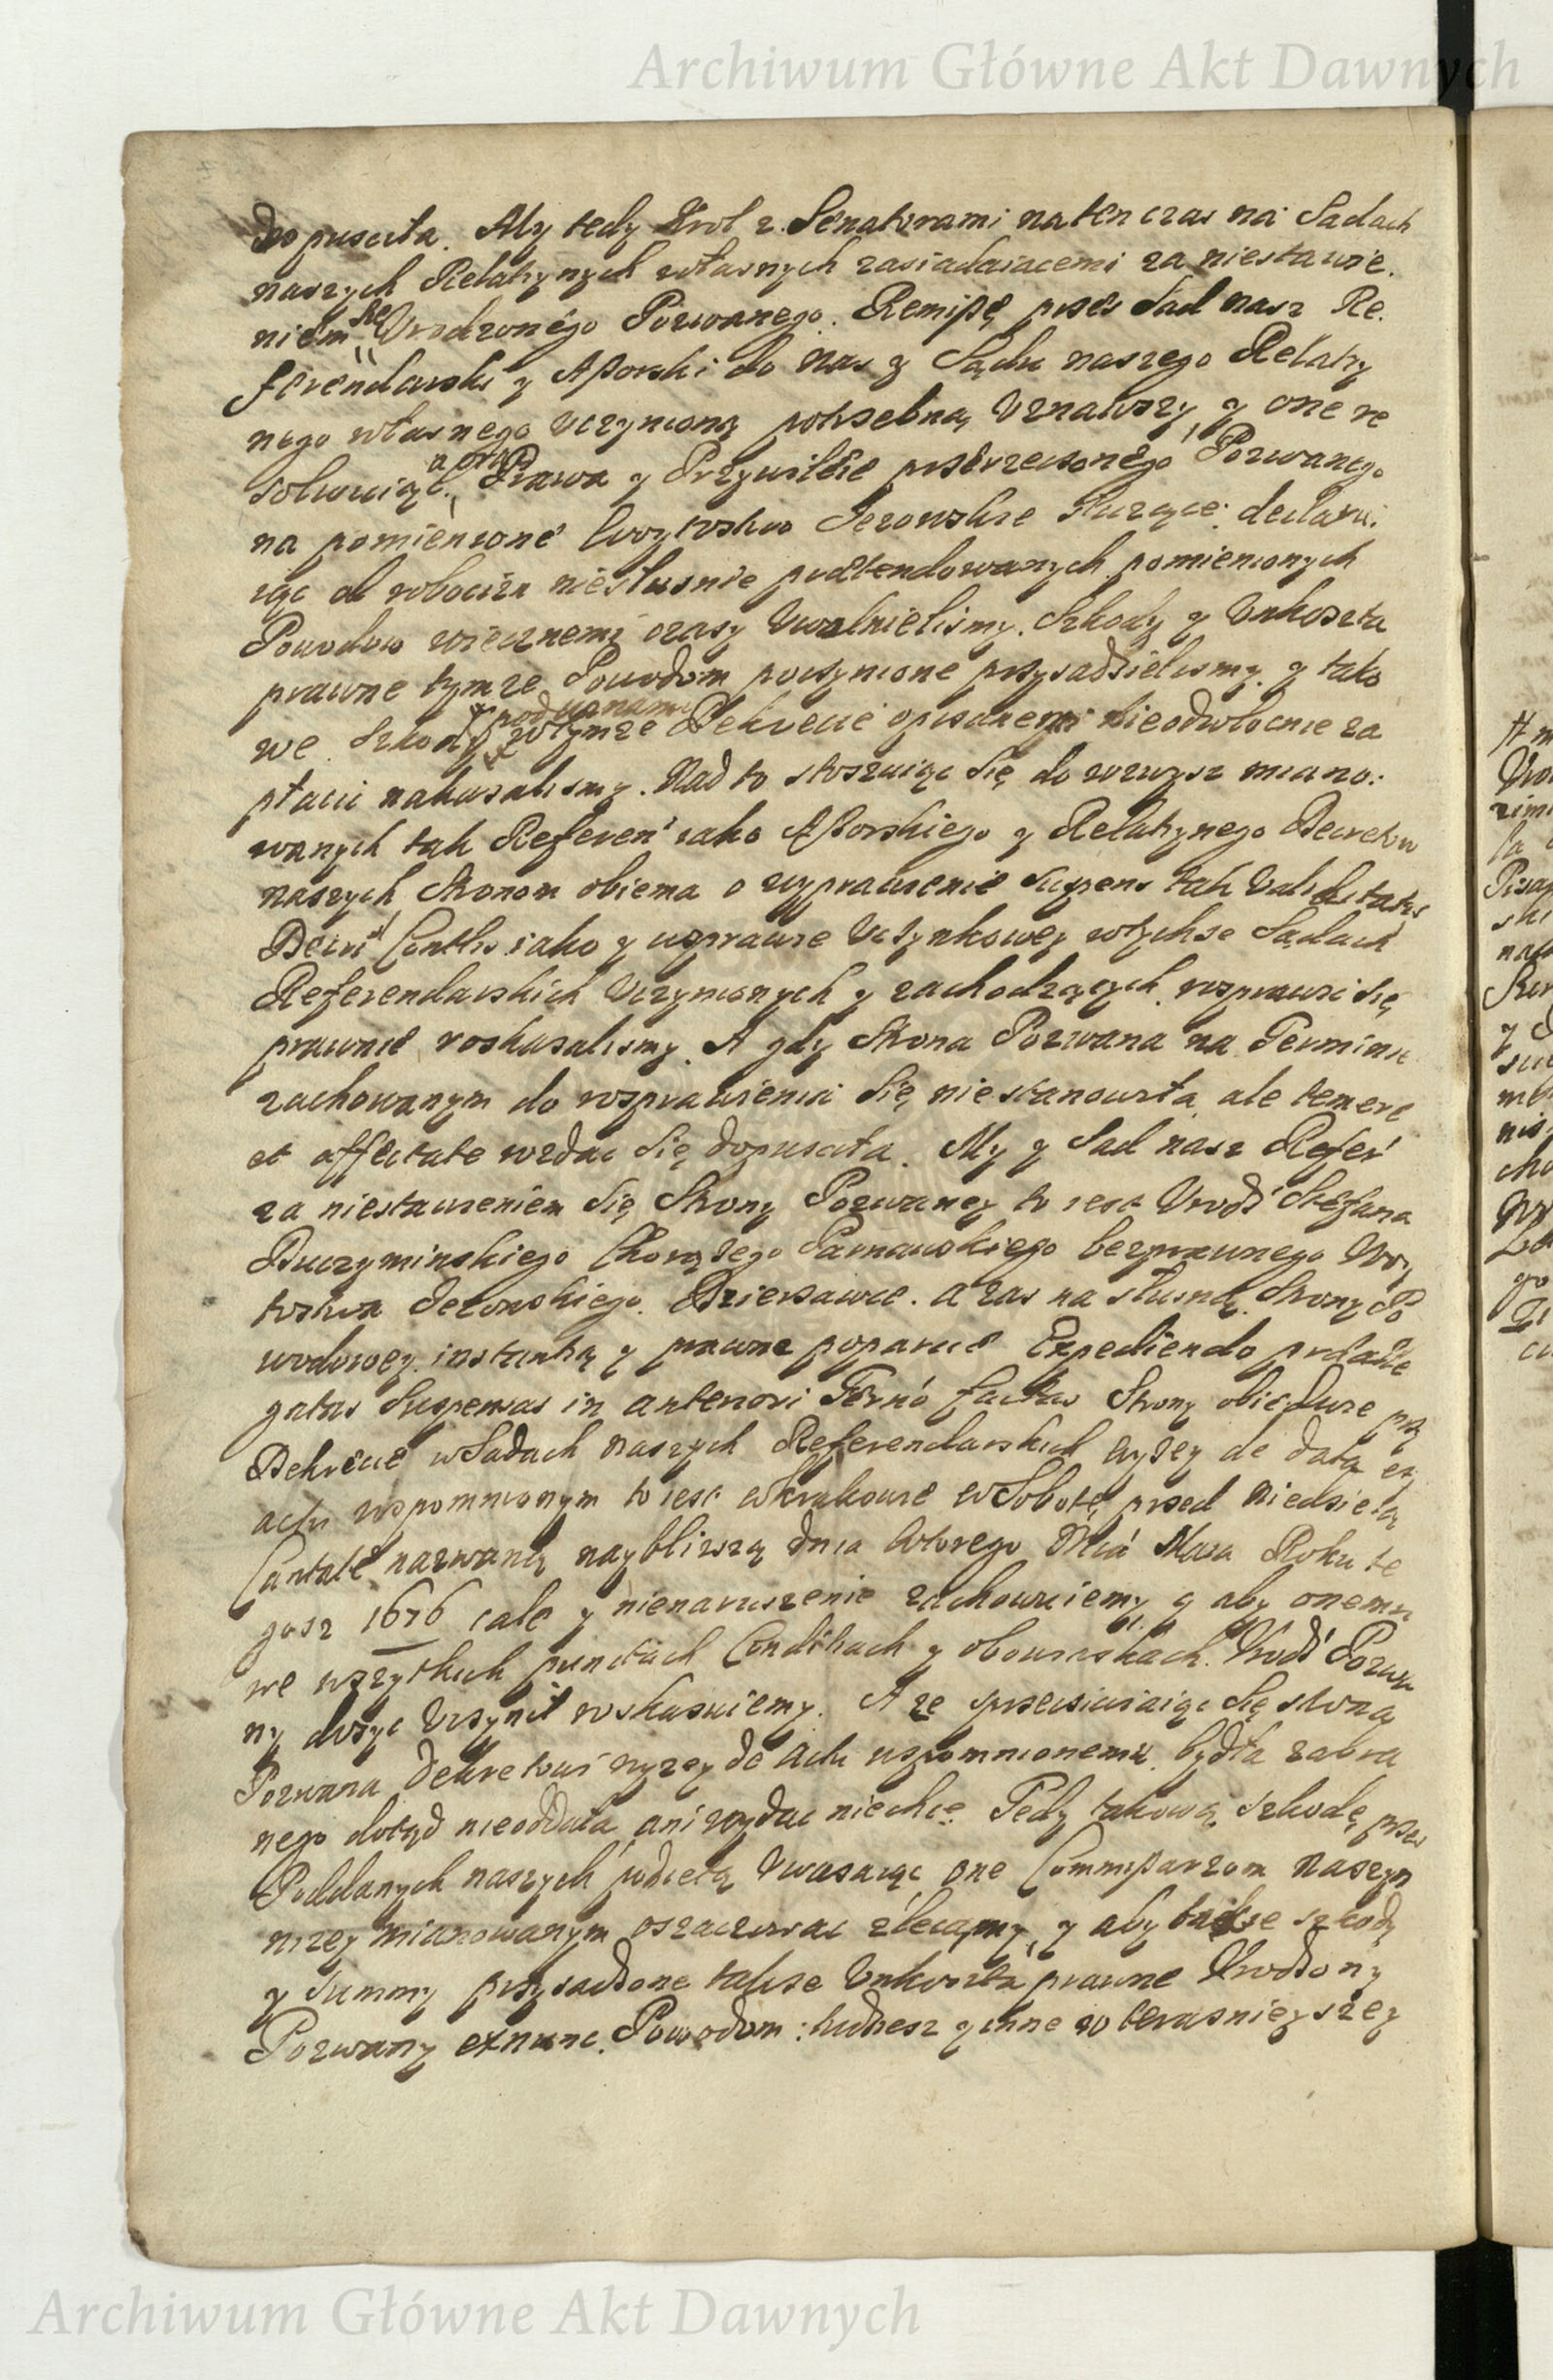 Archiwum Główne Akt Dawnych
dopusciła. My tedy Krol z Senatorami na ten czas na Sadach
naszych Relatiynych własnych zasiadaiacemi za niestawie.
niem Się Vrodzonego Pozwanego. Remißę przes Sad nasz Re.
ferendarski y Aßorski do nas y Sądu naszego Relatiy
nego własnego vczynioną potrzebną Vznawszy, y one re
solwuiąc a oraz Prawa y Przywileie przerzeczonego Pozwanego
na pomienione Woytostwo Jezowskie słuzące: declaru.
iąc od robocizn niesłusznie praetendowanych pomienionych
Powodow wiecznemi czasy Vwolnielismy. Szkody y Vnkoszta
prawne tymze Powodom poczynione przysadzielismy. y tako
we Szkody pod winami w tymze Dekrecie opisanemi nieodwłocznie za
płacic nakazalismy. Nad to stoszuiąc Się do wzwysz miano:
wanych tak Referen' iako Aßorskiego y Relatiynego Decretow
naszych Stronom obiema o wyprawienie Suspens tak Validitatis
Decreti Contlis iako y wsprawie Vczynkowey w tychze Sądach
Referendarskich Vczynionych y zachodzących rosprawic Się
prawnie roskazalismy. A gdy Strona Pozwana na Terminie
zachowanym do rosprawienia Się niestanowiła ale temere
et affectate wzdac Się dopusciła. My y Sad nasz Refer'
za niestawieniem Się Strony Pozwaney to iest Vrodz' Stefana
Duczyminskiego Chorązego Parnawskiego bezprawnego Woy
tostwa Jezowskiego Dzierzawce. a zas na słuszną Strony Po
wodowey instantią y prawne poparcie Expediendo praealle
gatas Suspensas in anteriori Termo factas Strony obiedwie przy
Dekrecie w Sadach naszych Referendarskich wyzey de data et
actu wspomnionym to iest w Krakowie w Sobotę przed Niedzielą
Cantate nazwaną naybliszą dnia wtorego Mca Maia Roku te
gosz 1676 cale y nienaruszenie zachowuiemy y aby onemu
we wszytkich punctach Conditiach y obowiąskach Vrodz' Pozwa
ny dosyc Vczynił roskazuiemy. A ze sprzeciwiaiąc Się strona
Pozwana Dekretowi wyzey de actu wspomnionemu bydła zabra
nego dotąd nieoddała, ani wydac niechce. Tedy takową szkodę przes
Poddanych naszych podiętą Vwazaiąc one Commißarzom naszym
nizey mianowanym oszacowac zlecamy, y aby takze szkody
y Summy przysadzone takze Vnkoszta prawne Vrodzony
Pozwany exnunc Powodom: tudziesz y inne w terazniejszey
Archiwum Główne Akt Dawnych